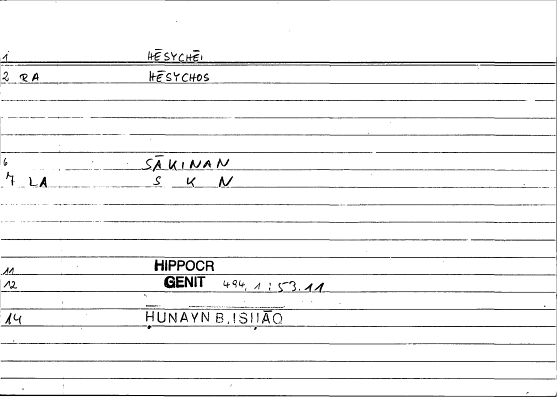 1 HĒSYCHĒI
2 RA HĒSYCHOS
6 SĀKINAN
7 LA S K N
11 HIPPOCR
12 GENIT 494,1 : 53.11
14 ḤUNAYN B. ISḤĀQ